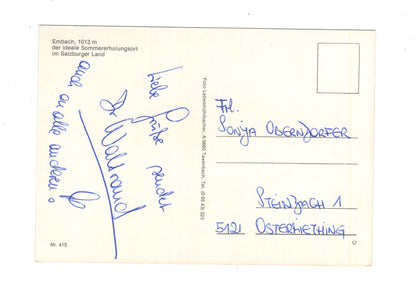 Embach, 1013 m
der ideale Sommererholungsort
im Salzburger Land
Liebe Grüße sendet
Dir Waltraud
auch an alle anderen!
Foto Lebesmühlbacher, A-5660 Taxenbach, Tel. (0 65 43) 323
Frl.
SONJA OBERNDORFER
STEINBACH 1
5121 OSTERMIETHING
Nr. 415